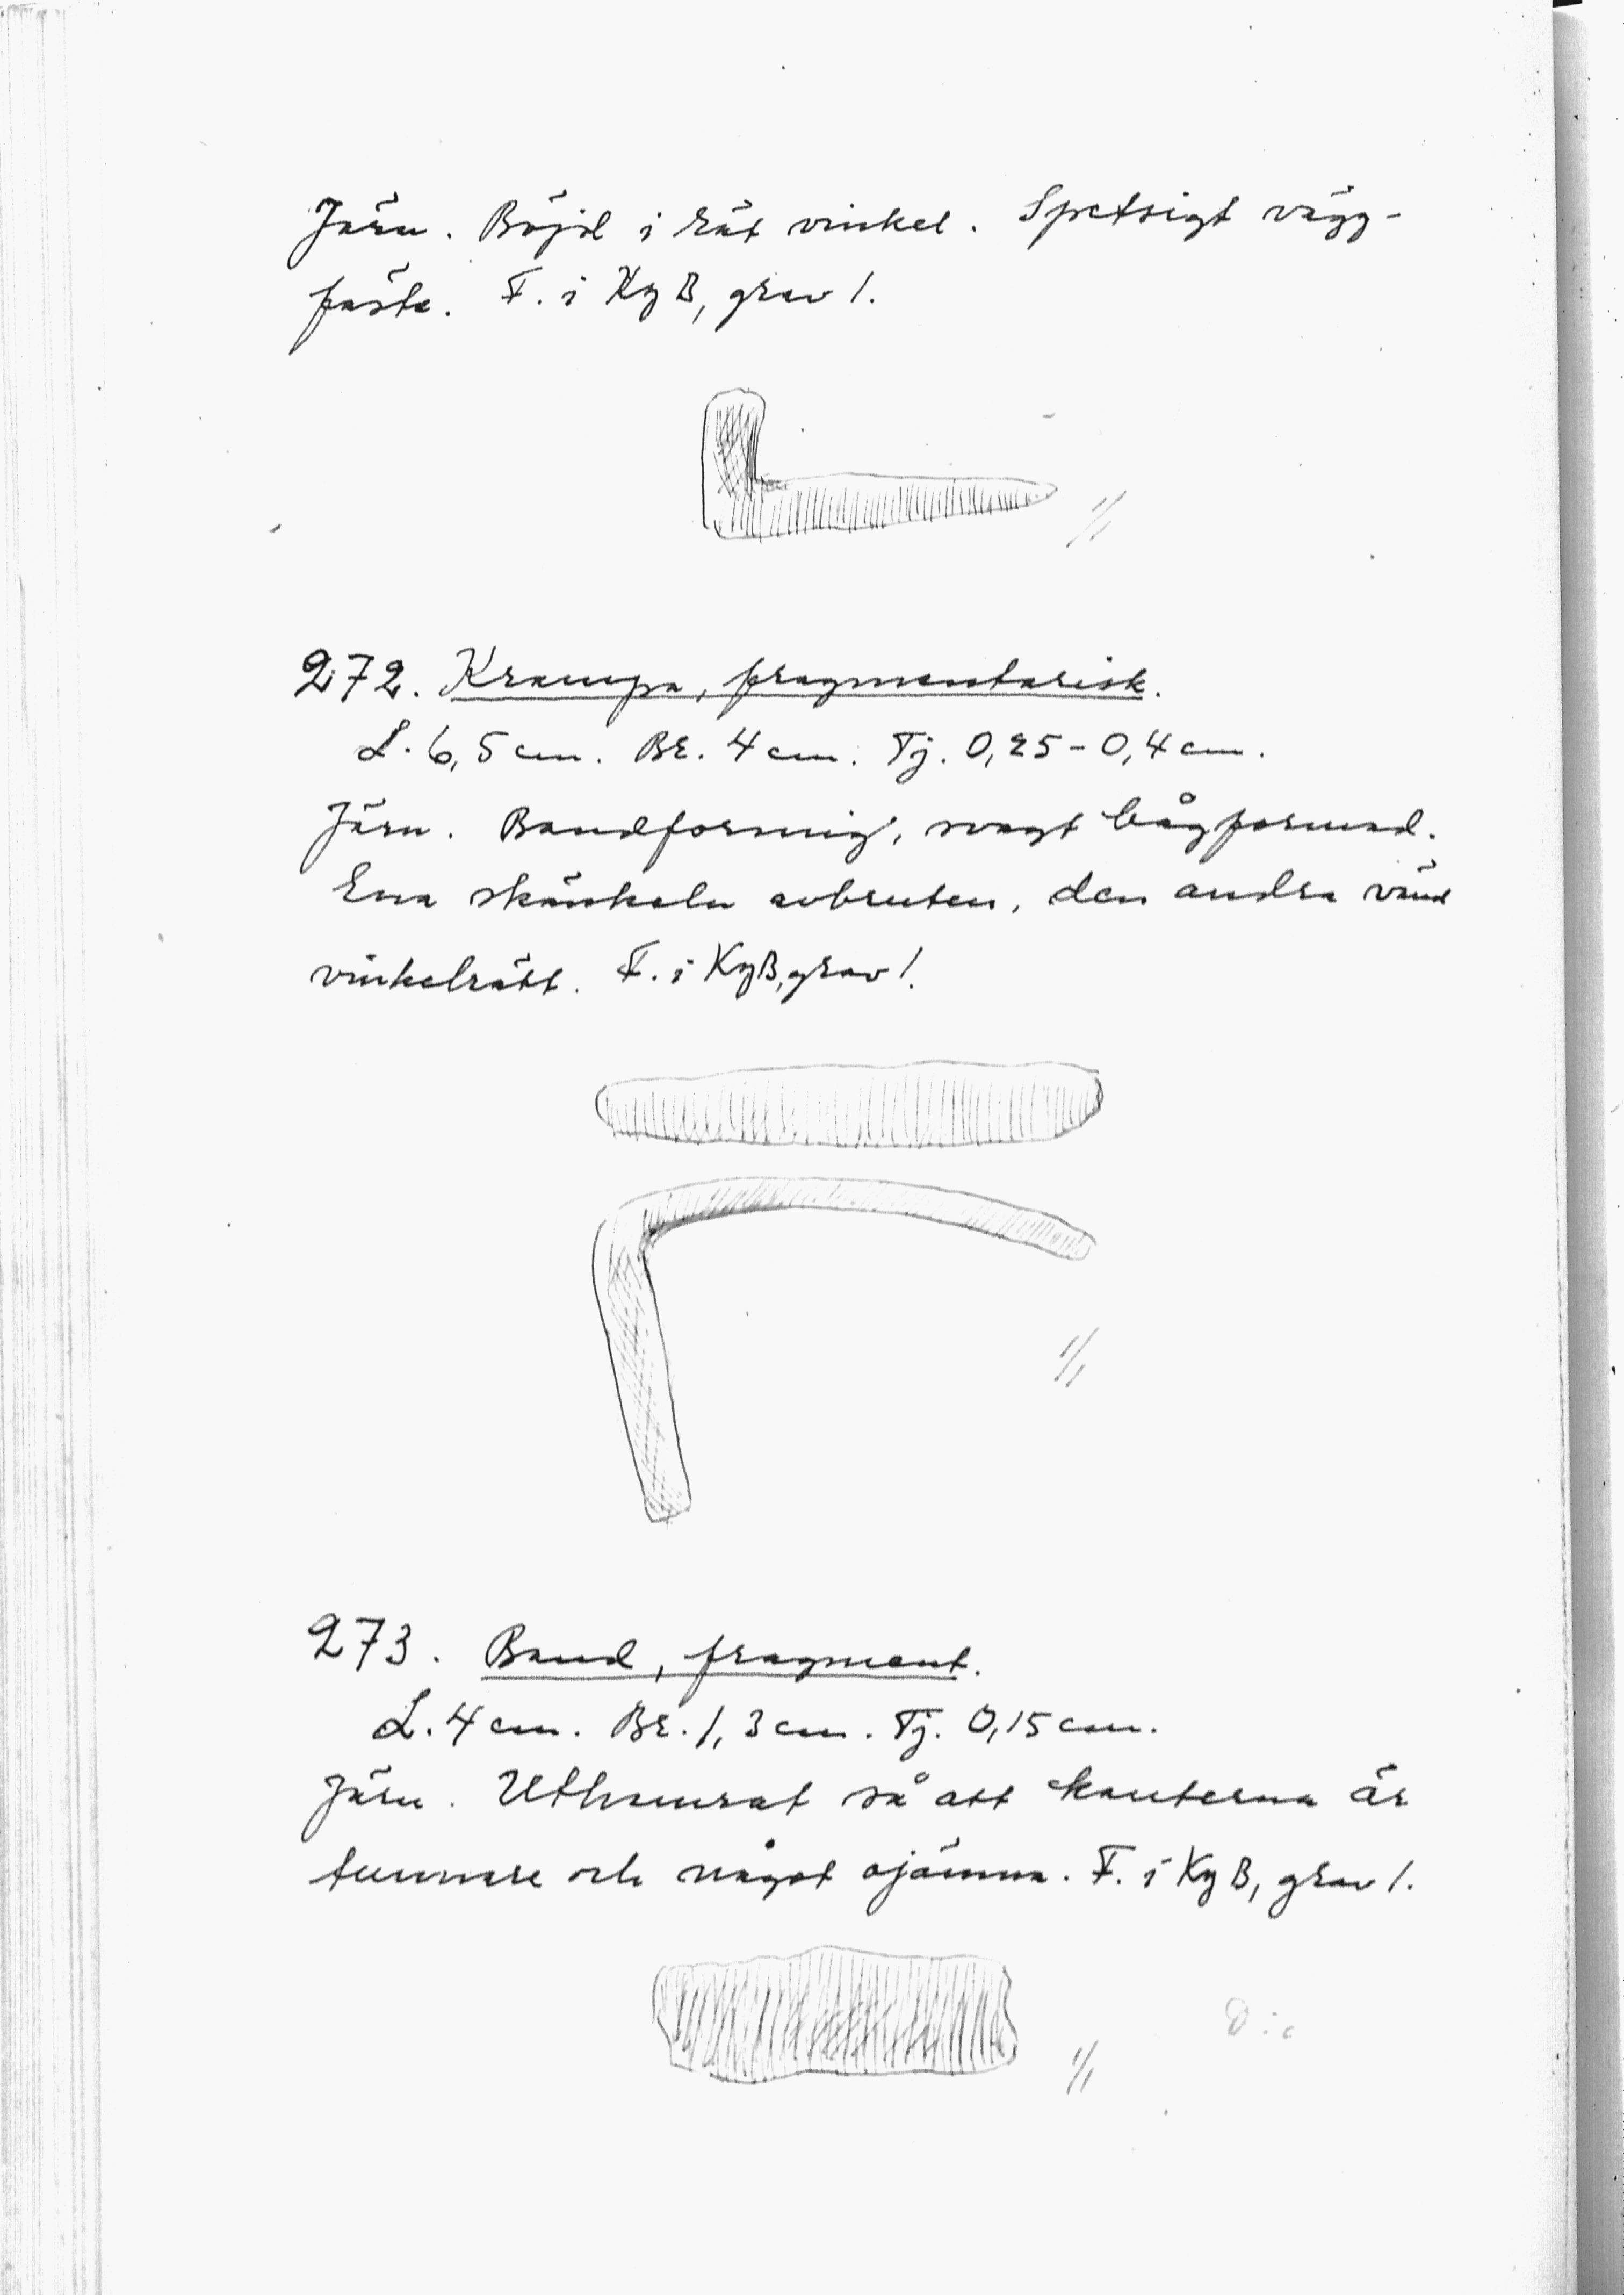 Järn. Böjd i rät vinkel. Spetsigt vägg-
fäste. F. i Kg B, grav 1.
1/1
272. Krampa, fragmentarisk.
L. 6,5 cm. Br. 4 cm. Tj. 0,25-0,4 cm.
Järn. Bandformig, svagt bågformad.
Ena skänkeln avbruten, den andra vänd
vinkelrätt. F. i Kg B, grav 1.
1/1
273. Band, fragment.
L. 4 cm. Br. 1,3 cm. Tj. 0,15 cm.
Järn. Uthamrat så att kanterna är
tunnare och något ojämna. F. i Kg B, grav 1.
1/1